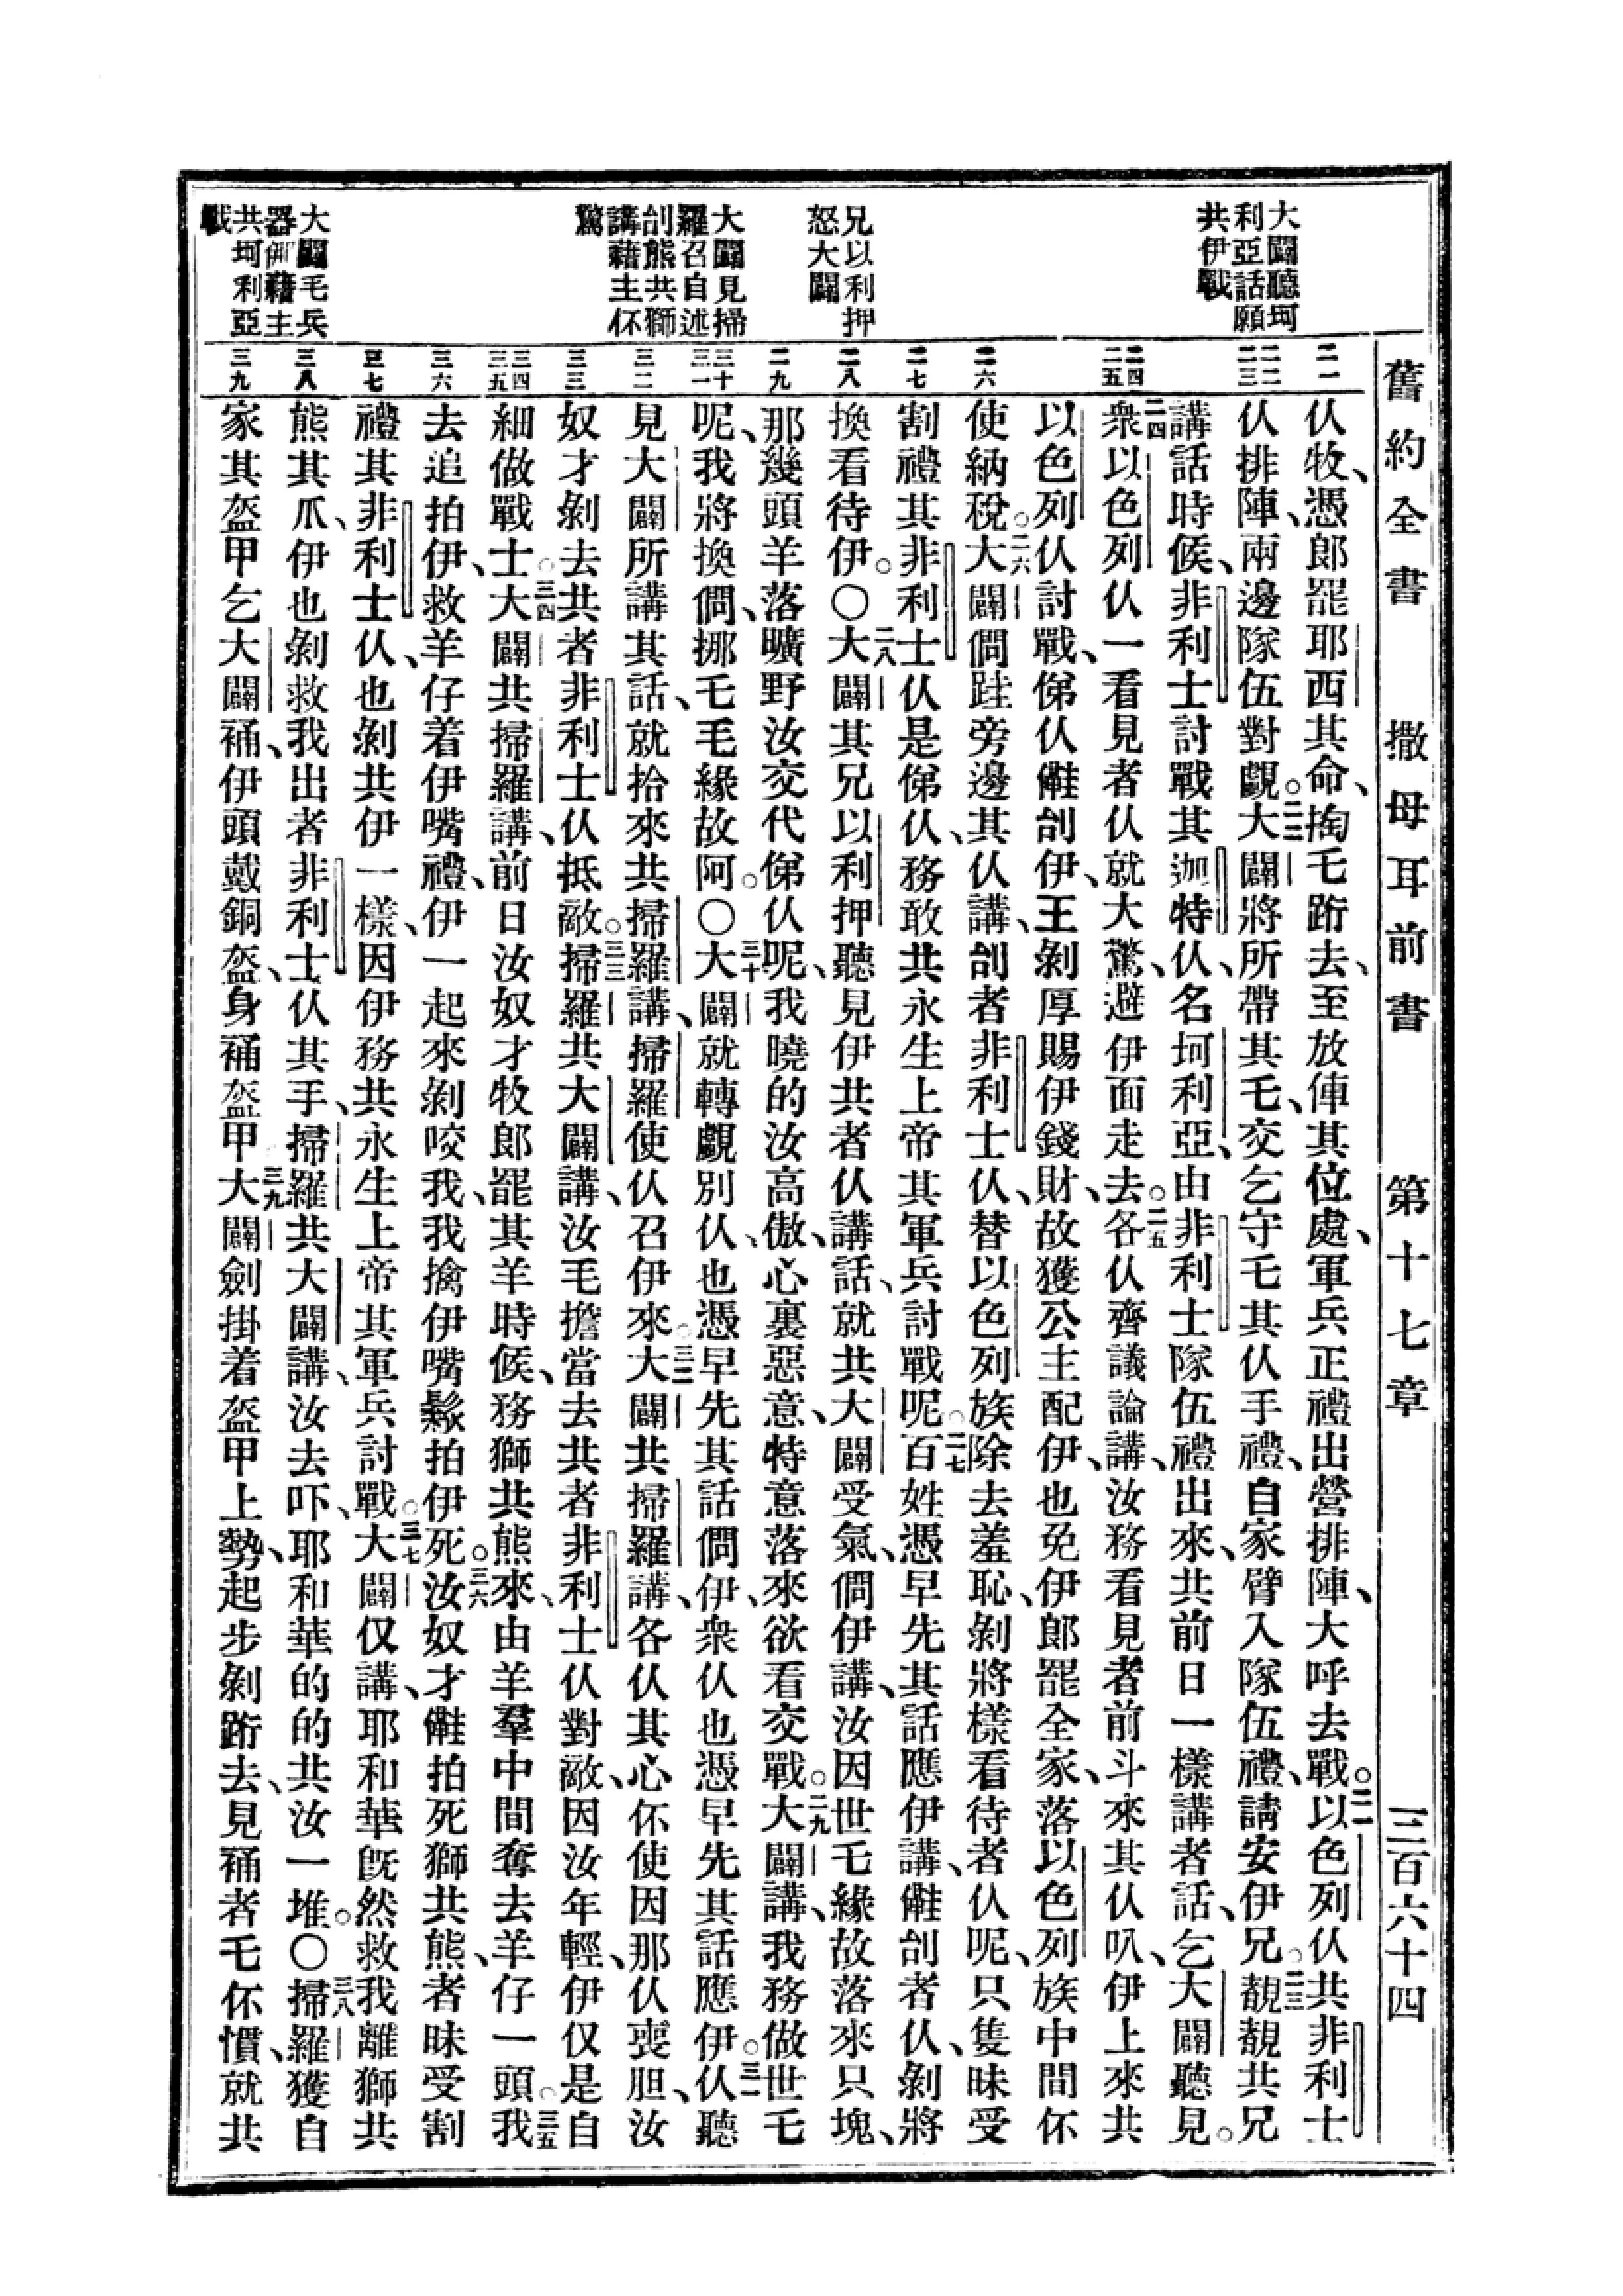 舊約全書 撒母耳前書 第十七章 三百六十四
大闢聽坷
利亞話願
共伊戰
兄以利押
怒大闢
大闢見掃
羅召自述
刣熊共獅
講藉主伓
驚
大闢毛兵
器藉主
共坷利亞
戰
二一
二二
二三
二四
二五
二六
二七
二八
二九
三十
三一
三二
三三
三四
三五
三六
三七
三八
三九
仈牧、憑郎罷耶西其命、掏乇跒去、至放俥其位處、軍兵正禮出營排陣、大呼去戰。二一以色列仈共非利士
仈排陣、兩邊隊伍對覷。二二大闢將所帶其乇、交乞守乇其仈手禮、自家臂入隊伍禮、請安伊兄。二三覩覩共兄
講話時候、非利士討戰其迦特仈、名坷利亞、由非利士隊伍禮出來、共前日一樣講者話、乞大闢聽見。
二四衆以色列仈一看見者仈就大驚、避伊面走去。二五各仈齊議論講、汝務看見者前斗來其仈叭、伊上來共
以色列仈討戰、俤仈刣伊、王剝厚賜伊錢財、故獲公主配伊、也免伊郎罷全家、落以色列族中間伓
使納稅。二六大闢問跬旁邊其仈講、刣者非利士仈、替以色列族除去羞恥、剝將樣看待者仈呢、只隻昧受
割禮其非利士仈是俤仈、務敢共永生上帝其軍兵討戰呢。二七百姓憑早先其話應伊講、刣者仈、剝將
換看待伊。〇二八大闢其兄以利押、聽見伊共者仈講話、就共大闢受氣、問伊講、汝因世乇緣故落來只塊、
那幾頭羊落曠野汝交代俤仈呢、我曉的汝高傲、心裏惡意、特意落來欲看交戰。二九大闢講、我務做世乇
呢、我將換問、挪乇毛緣故阿。〇三十大闢就轉覷別仈、也憑早先其話問伊、衆仈也憑早先其話應伊。三一仈聽
見大闢所講其話、就拾來共掃羅講、掃羅使仈召伊來。三二大闢共掃羅講、各仈其心伓使因那仈喪胆、汝
奴才剝去共者非利士仈抵敵。三三掃羅共大闢講、汝毛擔當去共者非利士仈對敵、因汝年輕、伊仅是自
細做戰士。三四大闢共掃羅講、前日汝奴才牧郎罷其羊時候、務獅共熊來、由羊羣中間奪去羊仔一頭。三五我
去追拍伊、救羊仔着伊嘴禮、伊一起來剝咬我、我擒伊嘴鬏拍伊死。三六汝奴才拍死獅共熊、者昧受割
禮其非利士仈、也剝共伊一樣、因伊務共永生上帝其軍兵討戰。三七大闢仅講、耶和華旣然救我離獅共
熊其爪、伊也剝救我出者非利士仈其手、掃羅共大闢講、汝去吓、耶和華的的共汝一堆。〇三八掃羅獲自
家其盔甲乞大闢䘄、伊頭戴銅盔、身䘄盔甲。三九大闢劍掛着盔甲上、勢起步剝跒去、見䘄者乇伓慣、就共